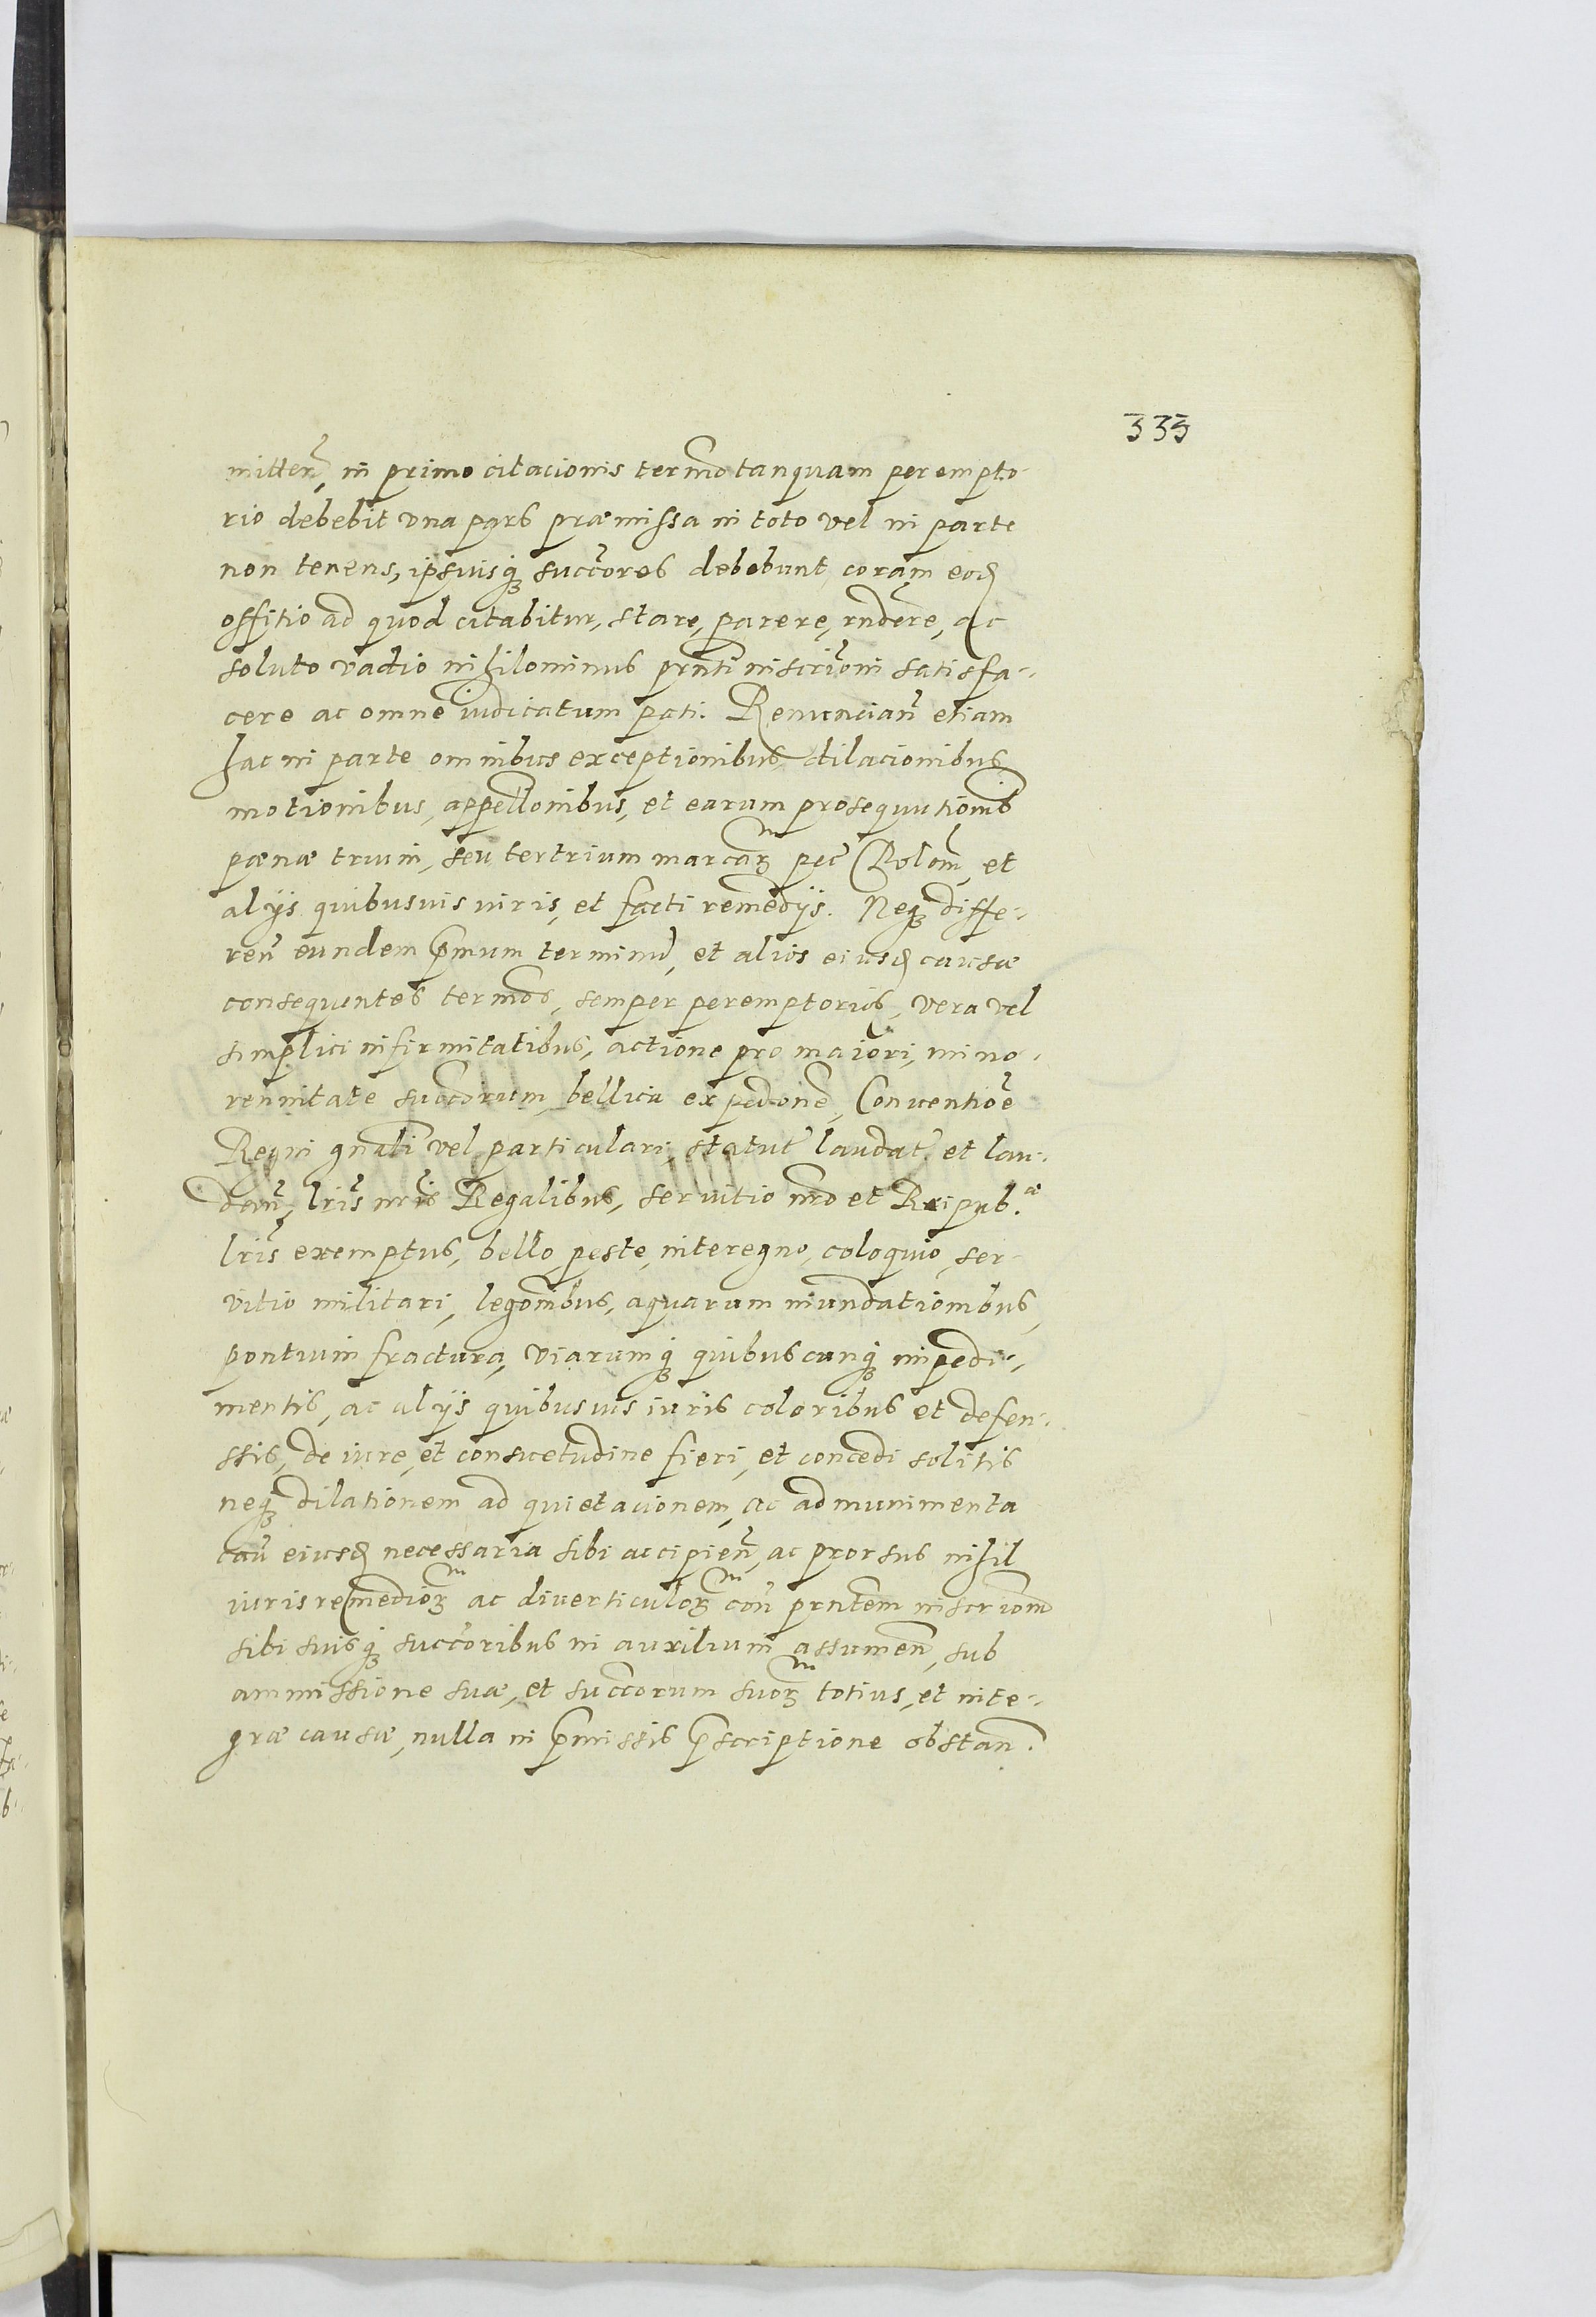 335
mitteñ, in primo citacionis termõ tanquam perempto-
rio debebit vna pars præmissa in toto vel in parte
non tenens, ipsuisq₃ succõres debebunt coram eod
offitio ad quod citabitur, stare, parere, rñdere, ac
soluto vadio nihilominus prñti inscriõni satisfa-
cere ac omne iudicatum pati. Renuncian̄ etiam
hac in parte omnibus exceptionibus dilacionibus
motionibus, appellõnibus, et earum prosequutionib
pænæ trium, seu tertrium marcarꝝ pec̄ Polon̄, et
alijs quibusuis iuris, et facti remedijs. Neq₃ diffe-
ren̄ eundem p̄mum terminū, et alios eiusd causæ
consequentes termõs, semper peremptorios, vera vel
simplici infirmitatibus, actione pro maiori, mino-
rennitate succõrum, bellica expedõne, Conuentiõe
Regni gñali vel particulari, statut̄ laudat̄ et lau-
dan̄, lr̄is nr̄is Regalibus, seruitio nr̄o et Reipub.æ
lr̄is exemptus, bello peste, interegno, coloquio, ser-
vitio militari, legõnibus, aquarum inundationibus,
pontium fractura, viarumq₃ quibuscunq₃ impedi-
mentis, ac alijs quibusuis iuris coloribus et defen-
ssis, de iure, et consuetudine fieri, et concedi solitis
neq₃ dilationem ad quietacionem, ac ad munimenta
cau̅ eiusd necessaria sibi accipien̄, ac prorsus nihil
iuris remediorꝝ ac diuerticulorꝝ con̄ prñtem inscriõm
sibi suisq₃ succõribus in auxilium assumen̄, sub
ammissione suæ, et succõrum suorꝝ totius, et inte-
græ causæ, nulla in p̄missis p̄scriptione obstan̄.